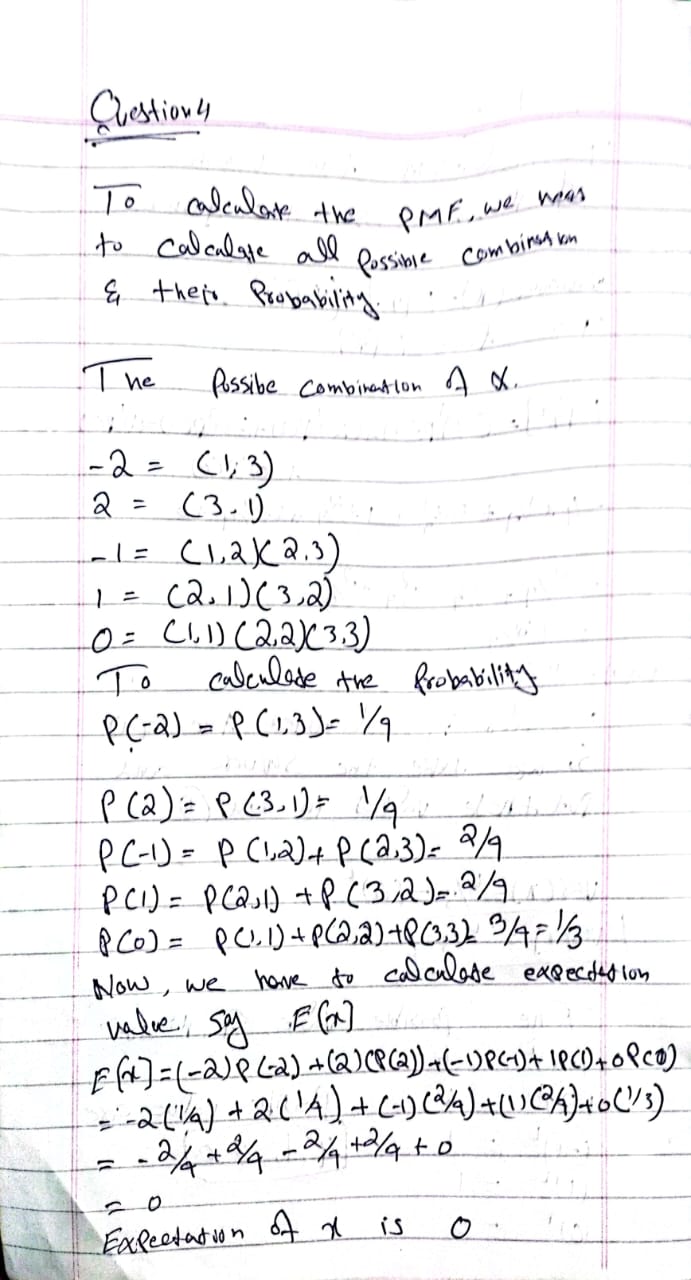 Question 4
To calculate the PMF, we
to calculate all Possible combination
& their Probability.
The Possibe combination of X.
-2 = (1,3)
2 = (3,1)
-1 = (1,2)(2,3)
1 = (2,1)(3,2)
0 = (1,1)(2,2)(3,3)
To calculate the Probability
P(-2) = P(1,3) = 1/9
P(2) = P(3,1) = 1/9
P(-1) = P(1,2) + P(2,3) = 2/9
P(1) = P(2,1) + P(3,2) = 2/9
P(0) = P(1,1) + P(2,2) + P(3,3) = 3/9 = 1/3
Now, we have to calculate expectation
value, say E[x]
E[x] = (-2)P(-2) + (2)(P(2)) + (-1)P(-1) + 1P(1) + 0P(0)
= -2(1/9) + 2(1/9) + (-1)(2/9) + (1)(2/9) + 0(1/3)
= -2/9 + 2/9 - 2/9 + 2/9 + 0
= 0
Expectation of x is 0